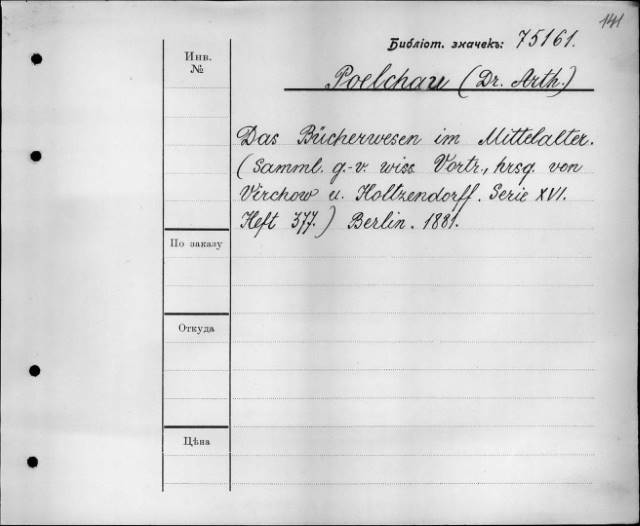 141
Библіот. значекъ: 75161.
Инв.
№
Poelchau (Dr. Arth.)
Das Bücherwesen im Mittelalter.
(Samml. g.-v. wiss. Vortr., hrsg. von
Virchow u. Holtzendorff. Serie XVI.
Heft 377.) Berlin. 1881.
По заказу
Откуда
Цѣна